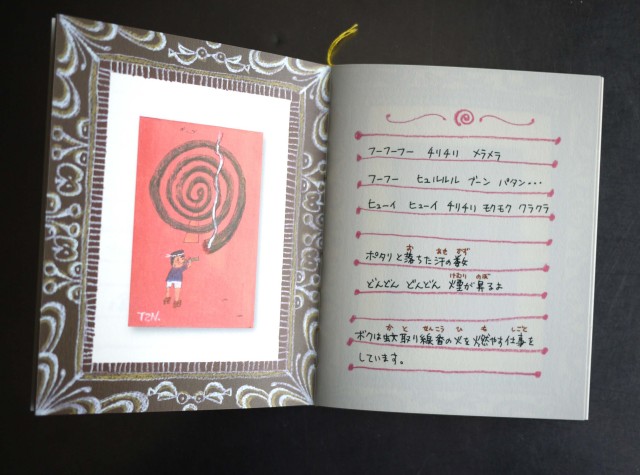 TZN.
フーフーフー チリチリ メラメラ
フーフー ヒュルルル ブーン パタン・・・
ヒューイ ヒューイ チリチリ モクモク クラクラ
お あせ かず
ポタリと落ちた汗の数
けむり のぼ
どんどん どんどん 煙が昇るよ
か と せんこう ひ も しごと
ボクは蚊取り線香の火を燃やす仕事を
しています。